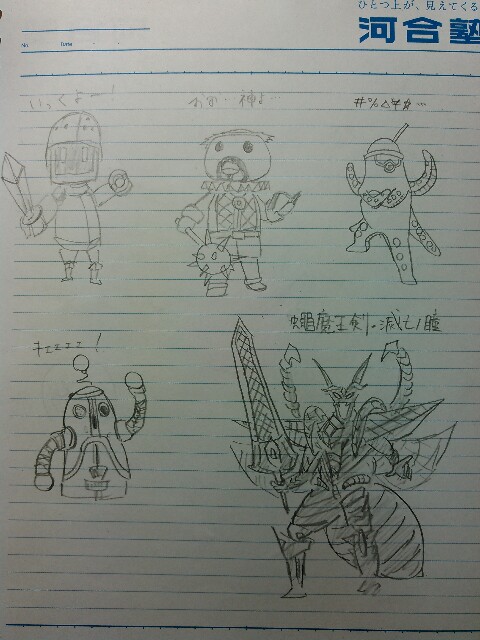 ひとつ上が、見えてくる
河合塾
No.
Date
いっくよー!
おお…神よ…
#%△¥&…
キエエエエ!
蝿魔王剣・滅亡ノ瞳